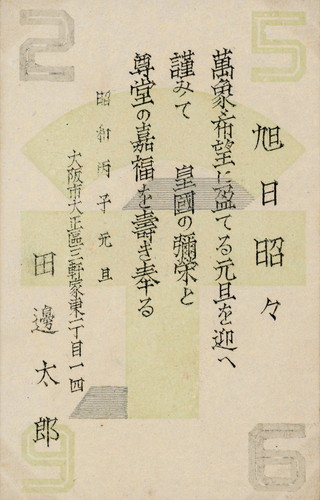 2 5
旭日昭々
萬象希望に盈てる元旦を迎へ
謹みて 皇國の彌榮と
尊堂の嘉福を壽き奉る
昭和丙子元旦
大阪市大正區三軒家東一丁目一四
田邊太郎
9 6